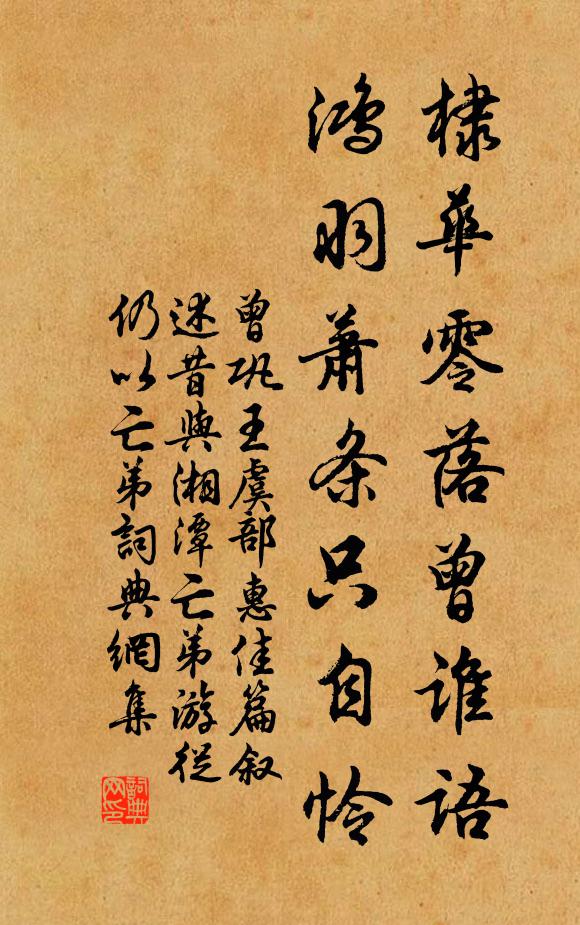 棣華零落曾誰語
鴻羽蕭条只自怜
曾巩王虞部惠佳篇叙
述昔與湘潭亡弟游從
仍以亡弟詞典網集
詞典
网印